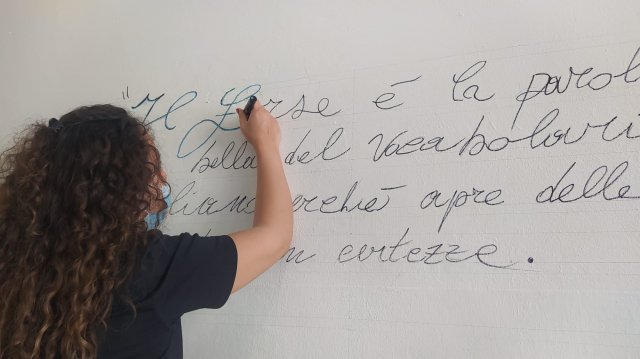 "Il Forse è la parol
bella del vocabolari
liano perché apre delle
certezze.